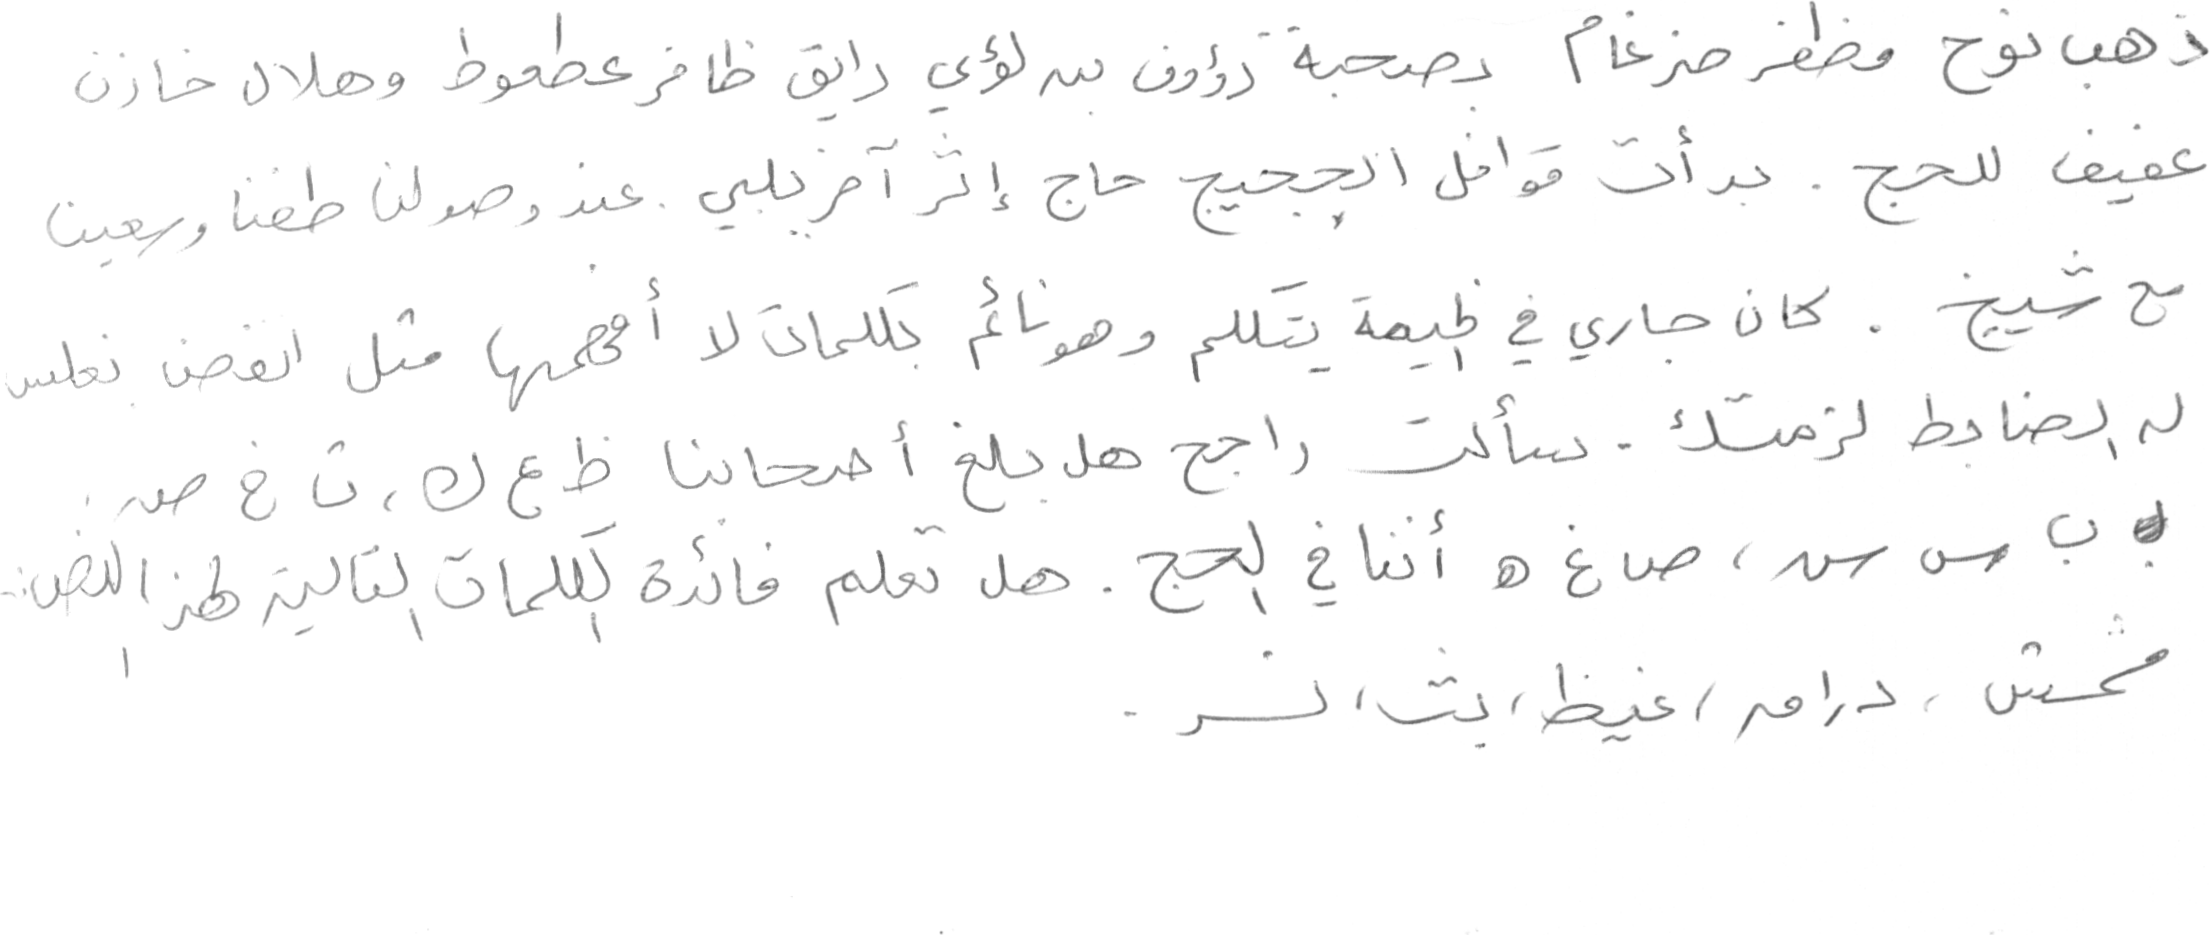 ذهب نوح ومظفر ضرغام بصحبة رؤوف بن لؤي رايق ظافر عطعوط وهلال خازن
عفيف للحج . بدأت قوافل الحجيج حاج إثر آخر يلبي . عند وصولنا طفنا وسعينا
مع شيخ . كان جاري في خيمة يتكلم وهو نائم بكلمات لا أفهمها مثل انقض نعلس
له الضابط لزمتك . سألت راجح هل بلغ أصحابنا ظ ع ك ، ث غ ص ،
ب س س ، ص غ ه أننا في الحج . هل تعلم فائدة الكلمات التالية لهذا النص :
مشمش ، درامه ، غيظ ، بث ، نسر .